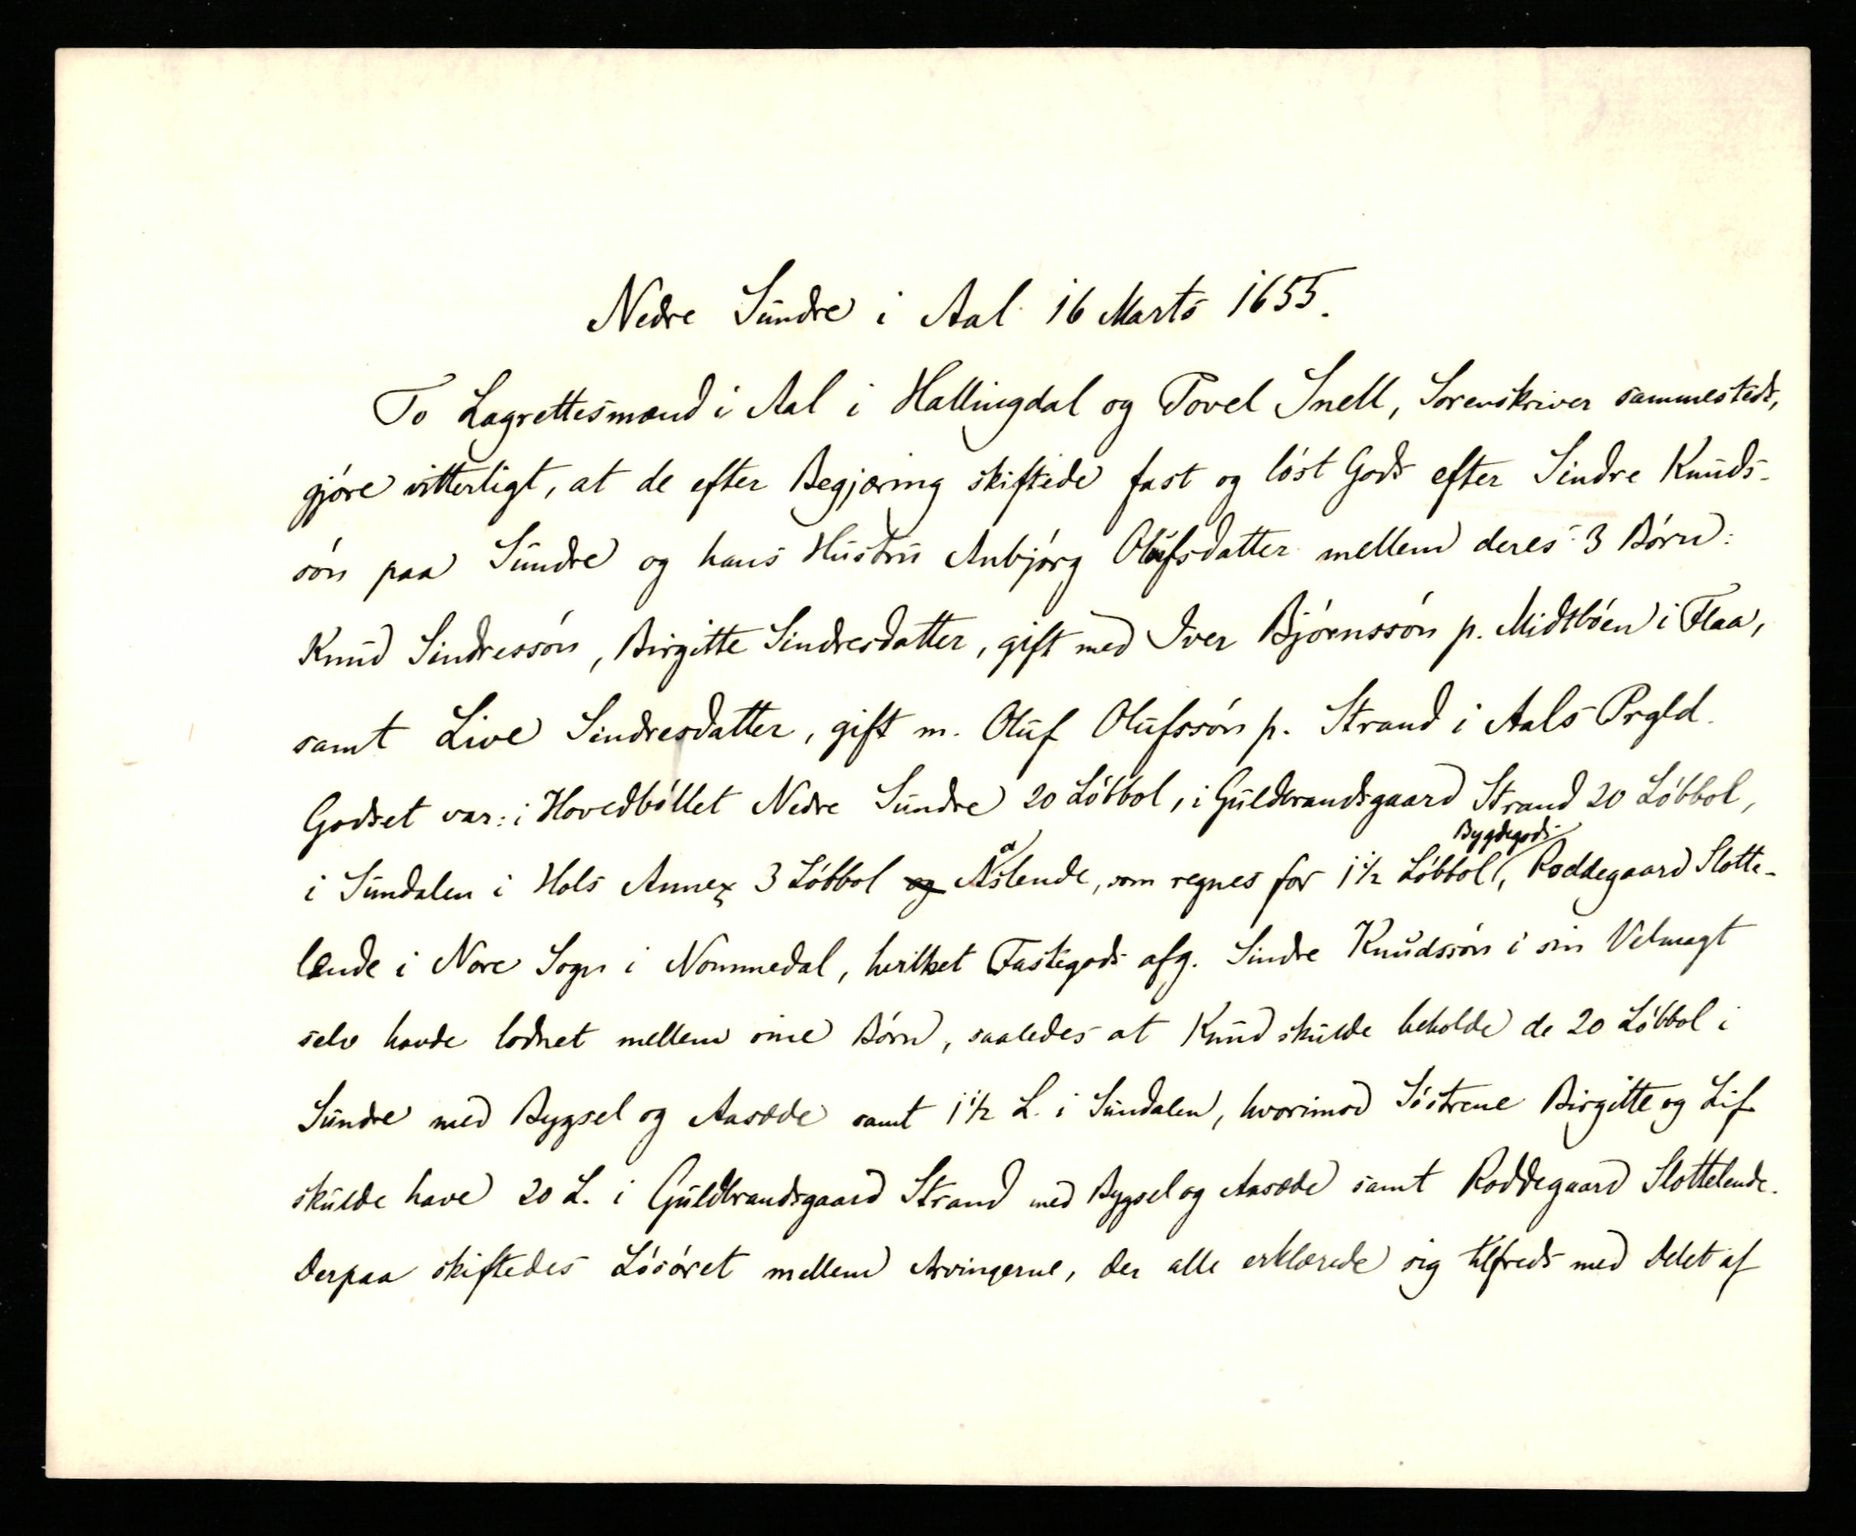 Nedre Sundre i Aal 16 Marts 1655.
To Lagrettesmænd i Aal i Hallingdal og Povel Snell, Sorenskriver sammesteds,
gjøre vitterligt, at de efter Begjæring skiftede fast og løst Gods efter Sindre Knuds-
søn paa Sundre og hans Hustru Anbjørg Olufsdatter mellem deres 3 Børn:
Knud Sindressøn, Birgitte Sindresdatter, gift med Iver Bjørnssøn p. Midtbøen i Flaa,
samt Live Sindresdatter, gift m. Oluf Olufssøn p. Strand i Aals Prgld.
Godset var: i Hovedbøllet Nedre Sundre 20 Løbbol, i Guldbrandsgaard Strand 20 Løbbol,
Bygdegods
i Sundalen i Hols Annex 3 Løbbol og Aslende, som regnes for 1 1/2 Løbbol, Roddegaard Slotte-
lænde i Nore Sogn i Nommedal, hvilket Fastegods afg. Sindre Knudssøn i sin Velmagt
selv havde lodnet mellem sine Børn, saaledes at Knud skulde beholde de 20 Løbbol i
Sundre med Bygsel og Aasæde samt 1 1/2 L. i Sundalen, hvorimod Søstrene Birgitte og Lif
skulde have 20 L. i Guldbrandsgaard Strand med Bygsel og Aasæde samt Roddegaard Slottelende.
Derpaa skiftedes Løsøret mellem Arvingerne, der alle erklærede sig tilfreds med Delet af